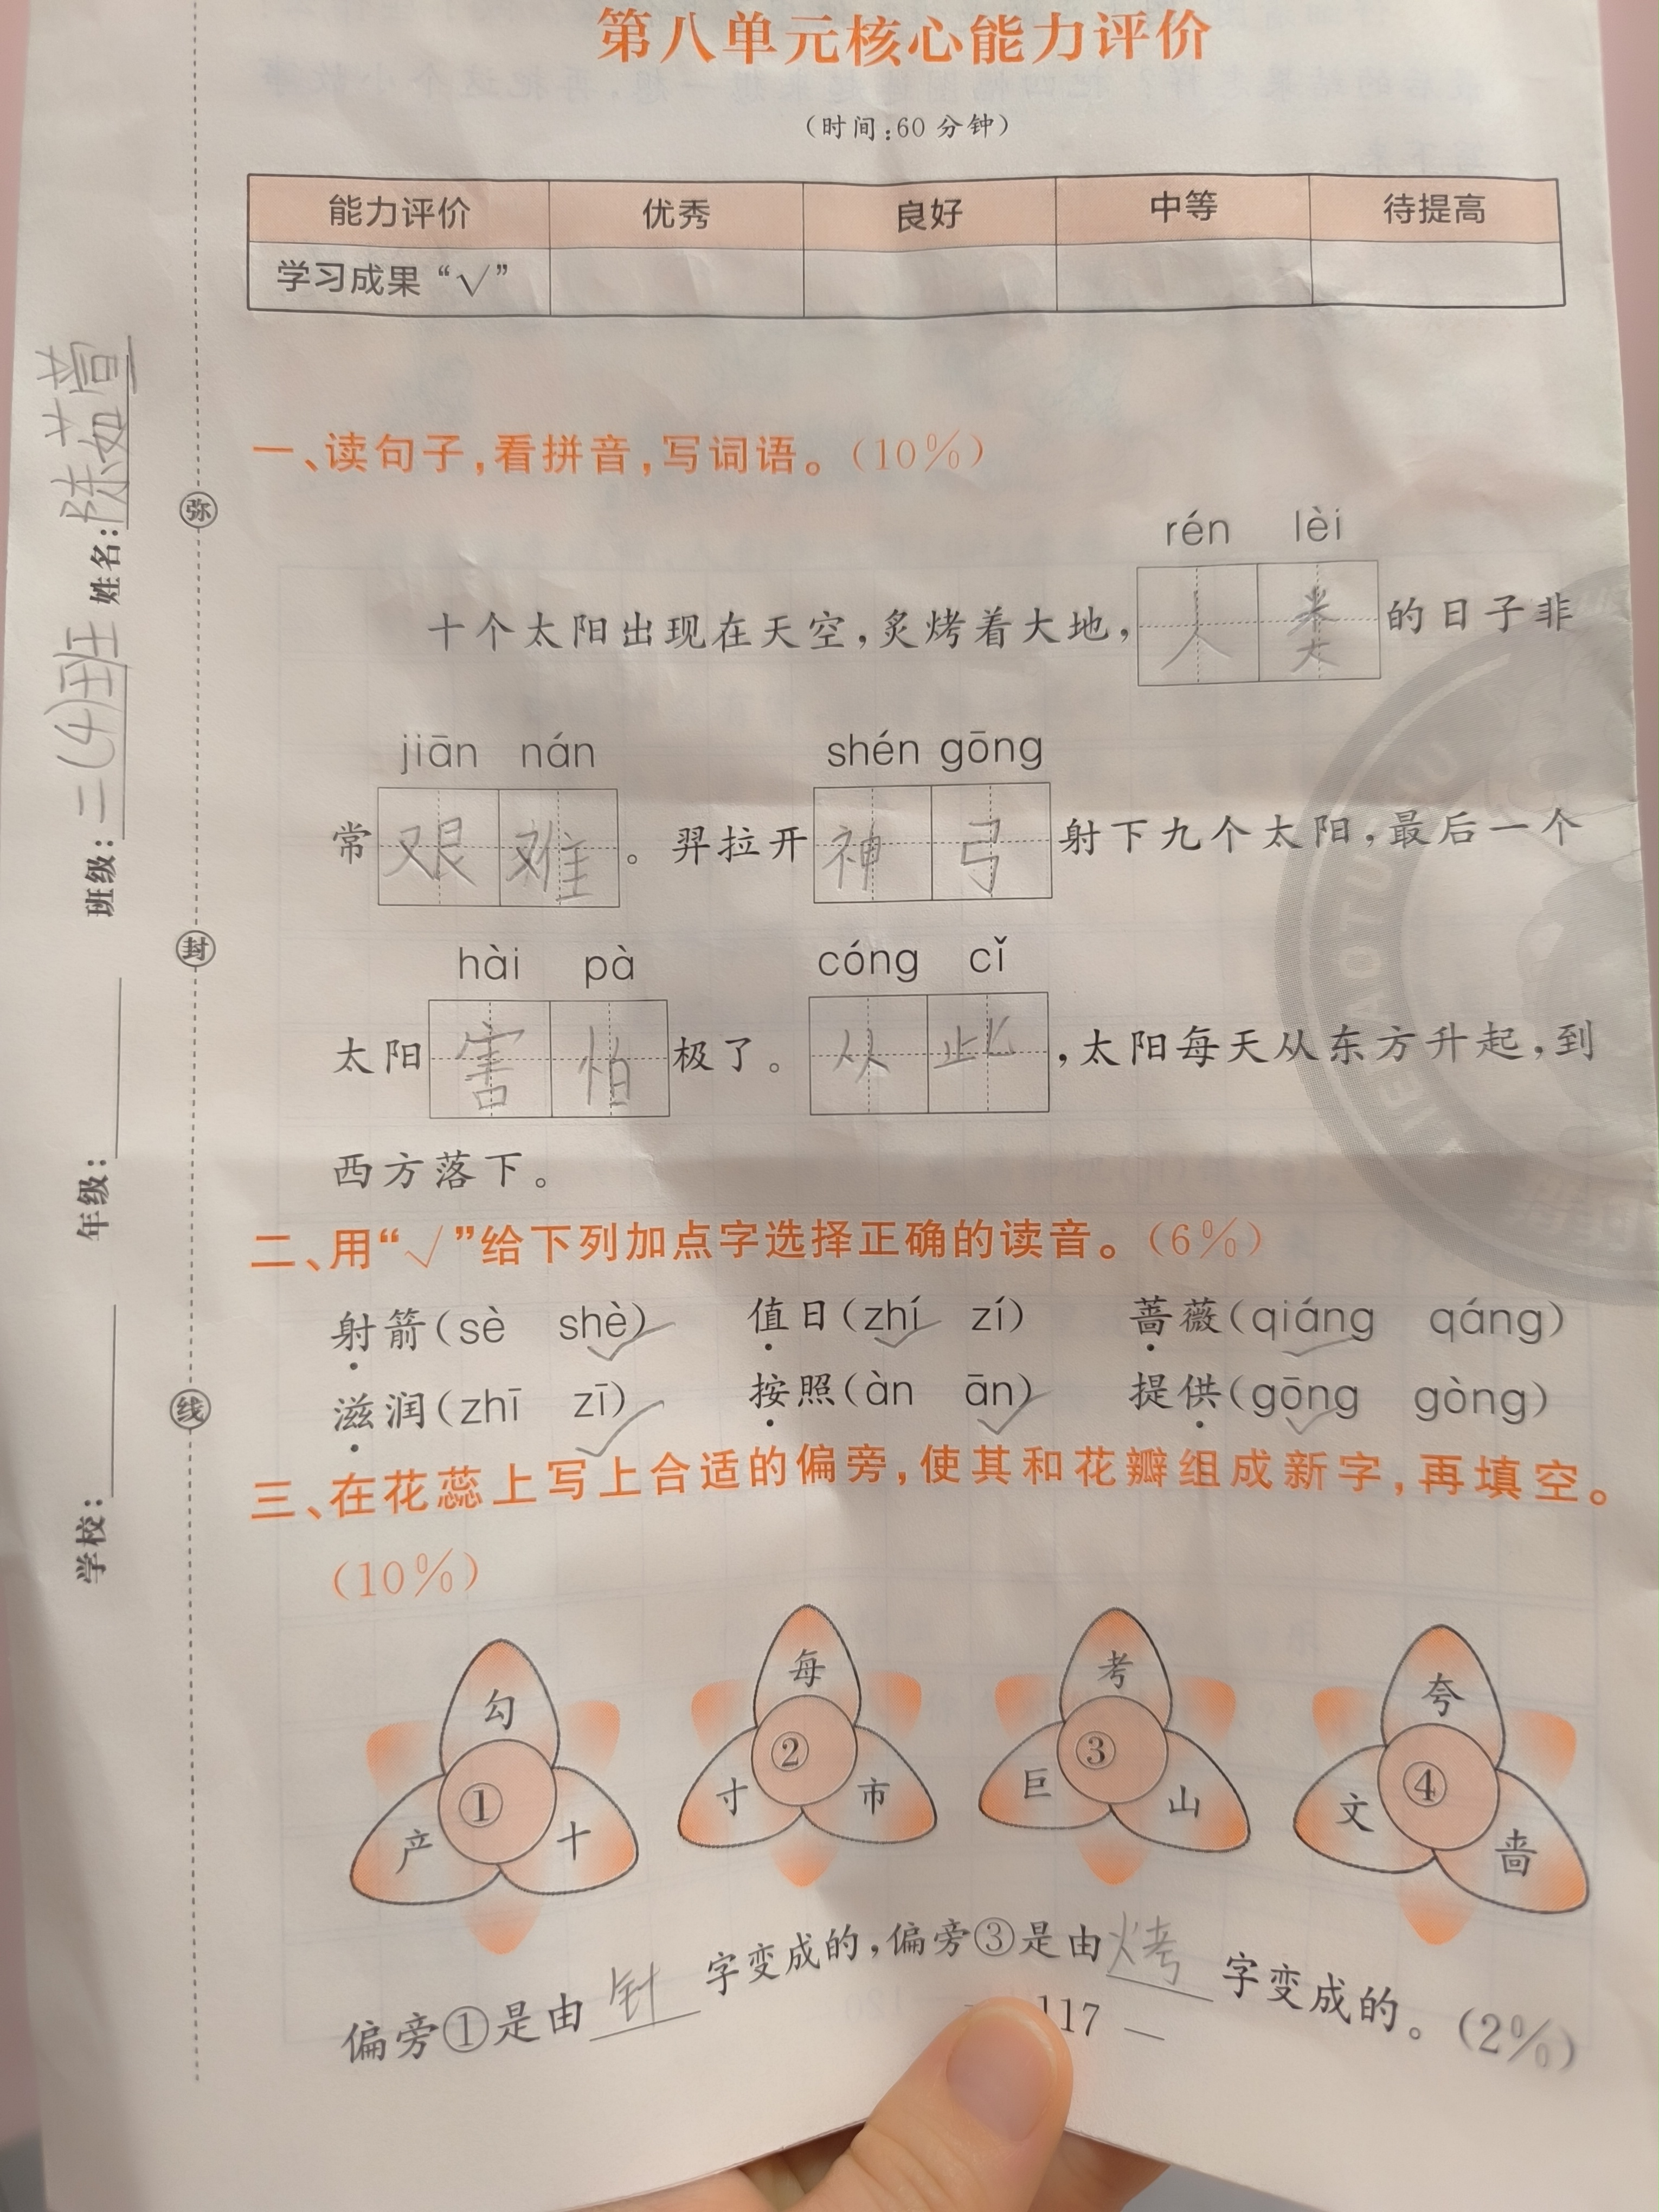 第八单元核心能力评价
(时间:60 分钟)
能力评价 优秀 良好 中等 待提高
学习成果“√”
一、读句子,看拼音,写词语。(10%)
rén lèi
十个太阳出现在天空,炙烤着大地,人类的日子非
jiān nán shén gōng
常艰难。羿拉开神弓射下九个太阳,最后一个
hài pà cóng cǐ
太阳害怕极了。从此,太阳每天从东方升起,到
西方落下。
二、用“√”给下列加点字选择正确的读音。(6%)
射箭(sè shè) 值日(zhí zí) 蔷薇(qiáng qáng)
滋润(zhī zī) 按照(àn ān) 提供(gōng gòng)
三、在花蕊上写上合适的偏旁,使其和花瓣组成新字,再填空。
(10%)
勾 每 考 夸
① ② ③ ④
产 十 寸 市 巨 山 文 啬
偏旁①是由 针 字变成的,偏旁③是由 烤 字变成的。(2%)
117 —
学校: 年级: 班级:二(4)班 姓名:陈茹萱
弥
封
线